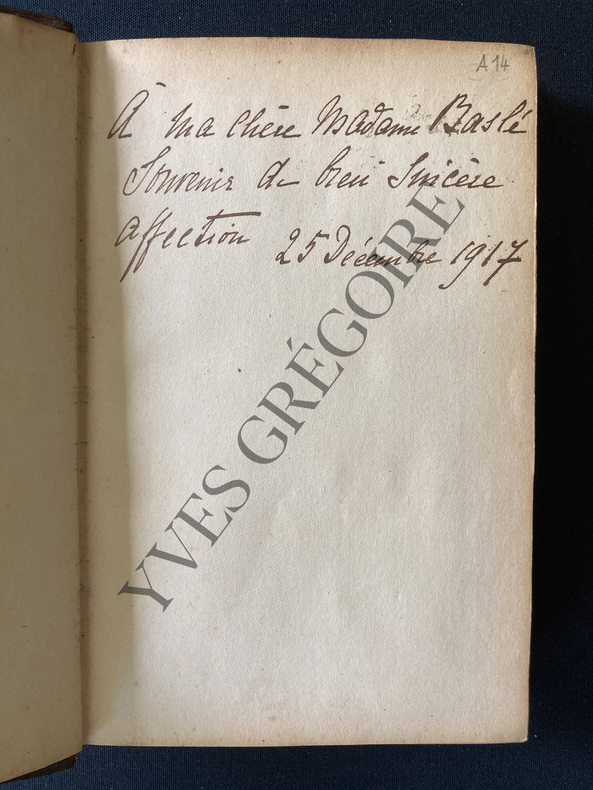 A 14
À ma chère Madame Baslé
Souvenir de bien Sincère
affection 25 Décembre 1917
YVES GRÉGOIRE